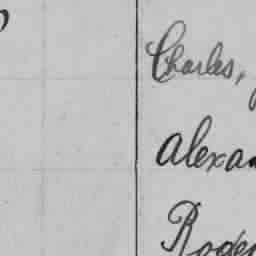 Charles,
Alexan
Roger